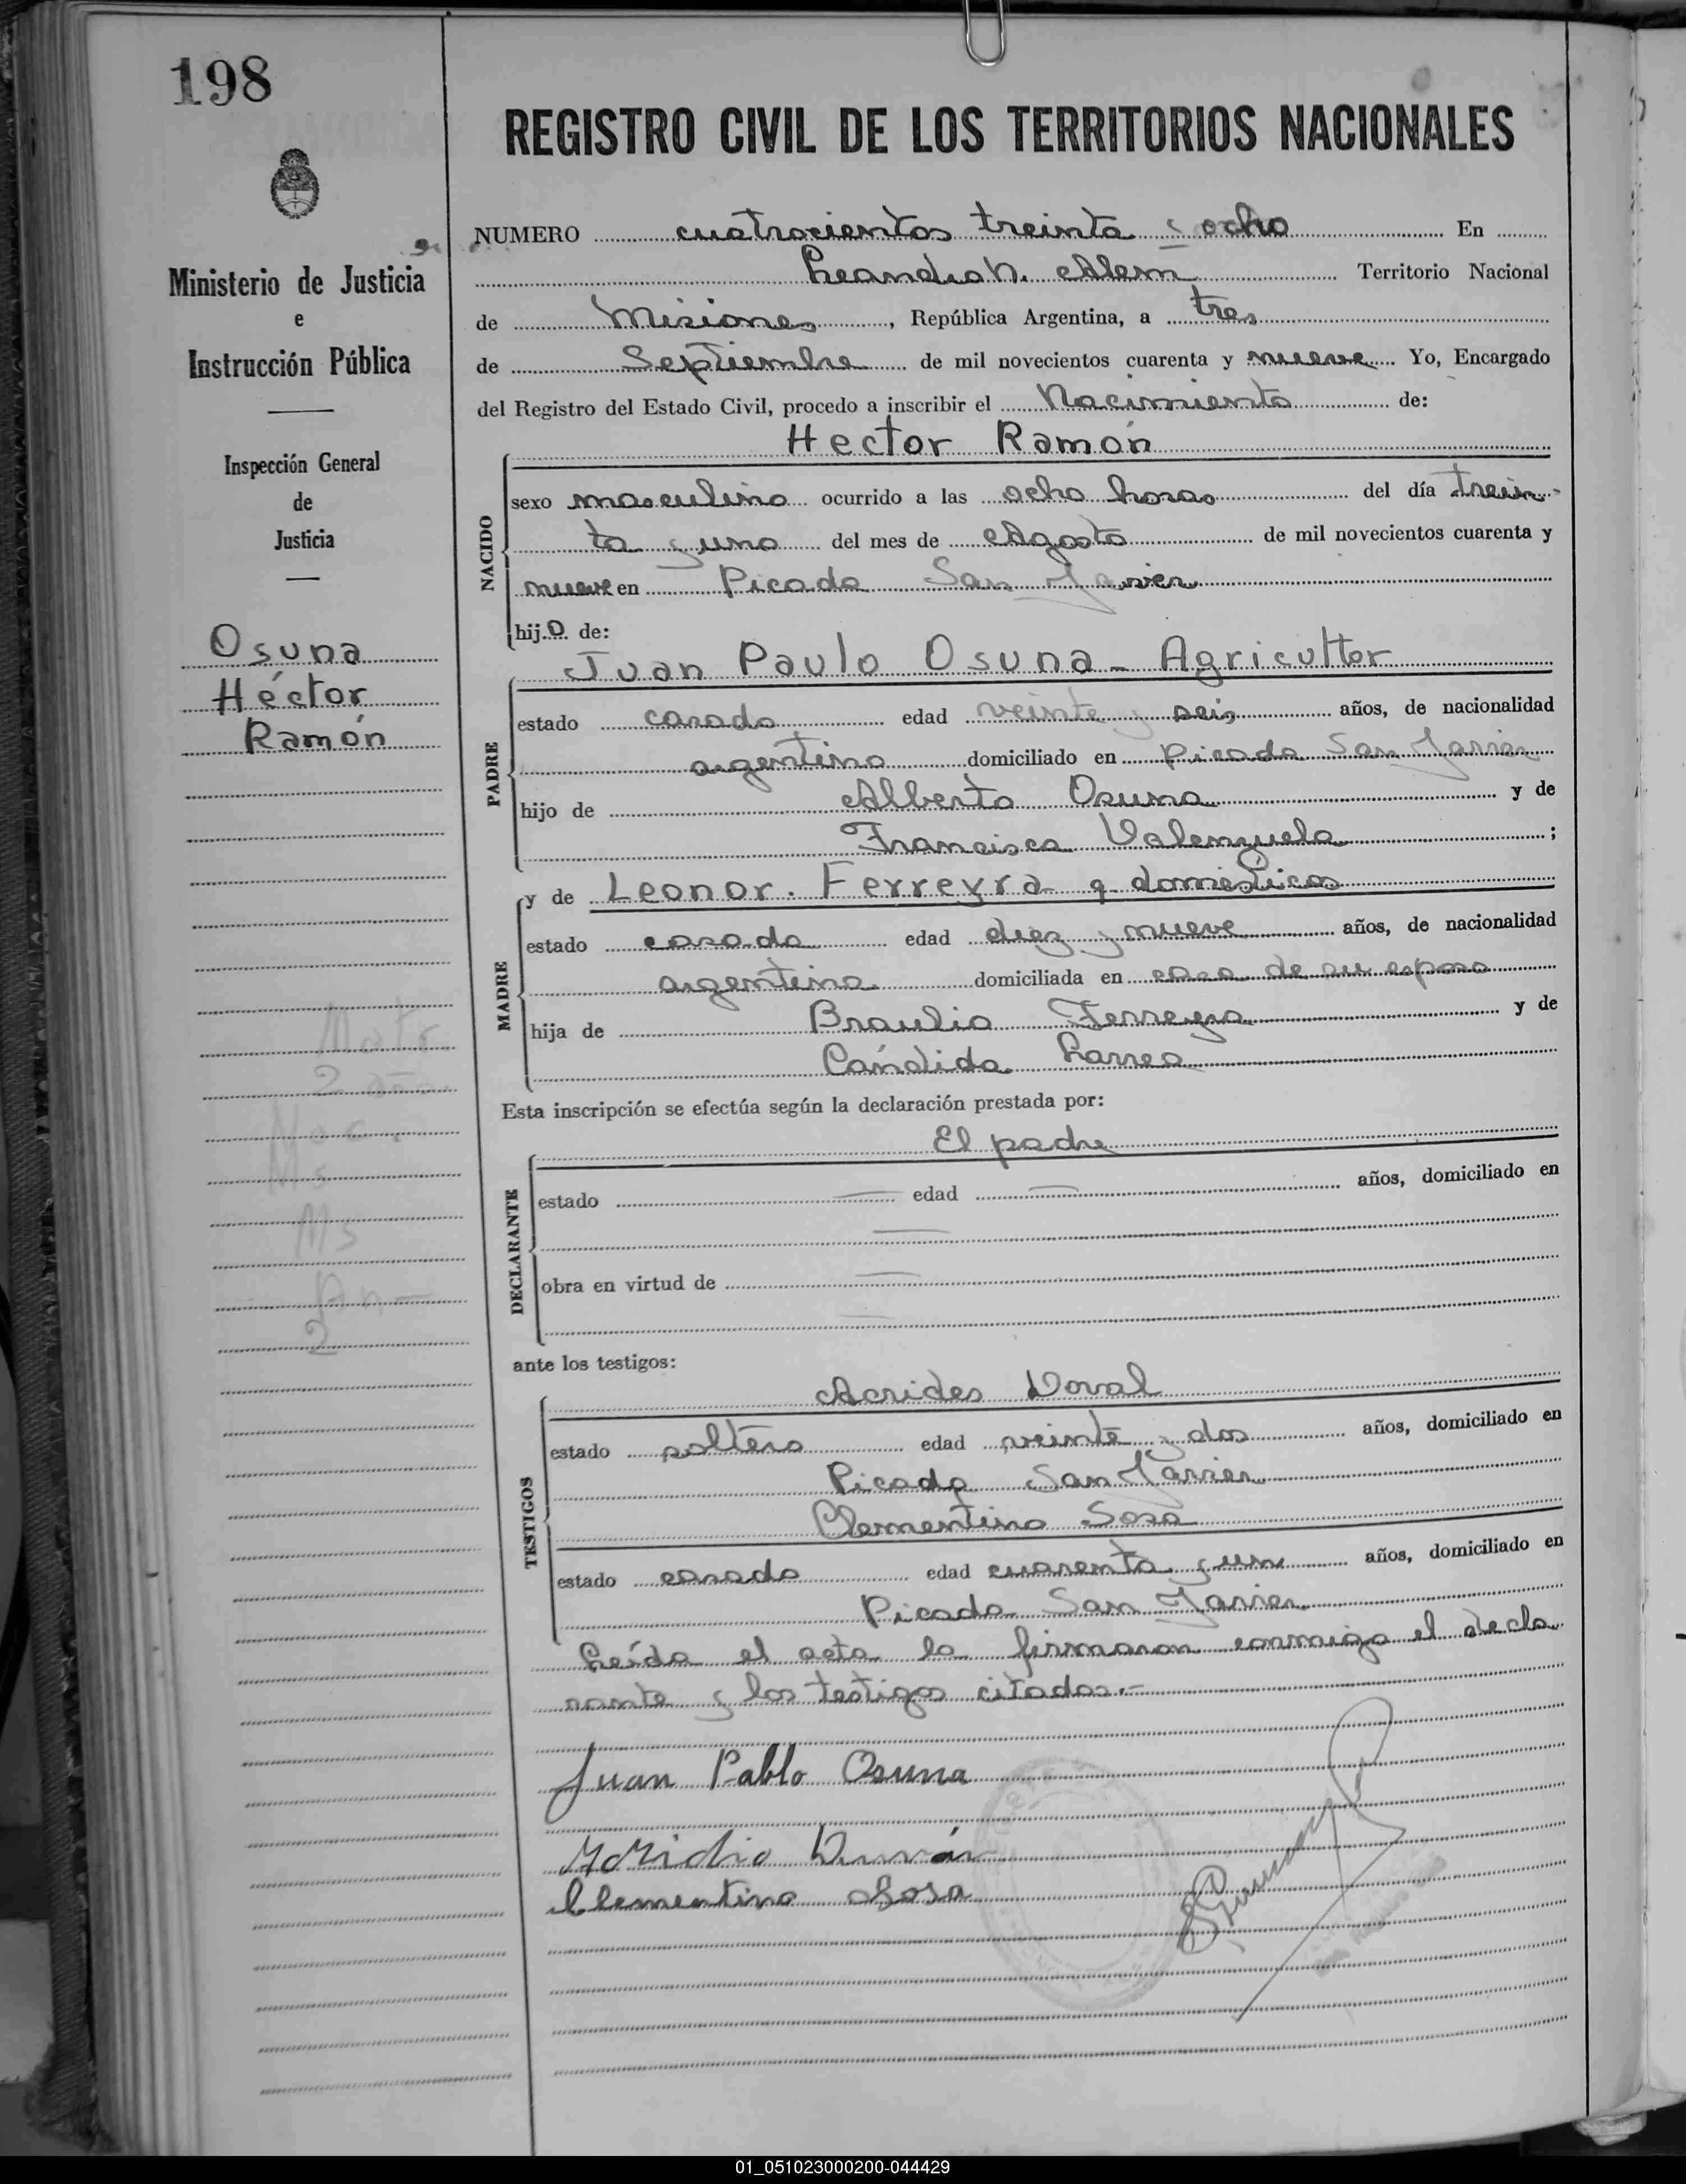 198
REGISTRO CIVIL DE LOS TERRITORIOS NACIONALES
Ministerio de Justicia
e
Instrucción Pública
Inspección General
de
Justicia
Osuna
Héctor
Ramón
NUMERO cuatrocientos treinta y ocho En
Leandro N. Alem Territorio Nacional
de Misiones, República Argentina, a tres
de Septiembre de mil novecientos cuarenta y nueve Yo, Encargado
del Registro del Estado Civil, procedo a inscribir el Nacimiento de:
Hector Ramón
NACIDO
sexo masculino ocurrido a las ocho horas del día trein-
ta y uno del mes de Agosto de mil novecientos cuarenta y
nueve en Picada San Javier
hijo de:
Juan Paulo Osuna - Agricultor
PADRE
estado casado edad veinte y seis años, de nacionalidad
argentino domiciliado en picada San Javier
hijo de Alberto Osuna y de
Francisca Valenzuela ;
y de Leonor. Ferreyra q. domésticos
MADRE
estado casada edad diez y nueve años, de nacionalidad
argentina domiciliada en casa de su esposo
hija de Braulio Ferreyra y de
Cándida Larrea
Esta inscripción se efectúa según la declaración prestada por:
El padre
DECLARANTE
estado — edad — años, domiciliado en
—
obra en virtud de —
—
ante los testigos:
Acrides Doval
TESTIGOS
estado soltero edad veinte y dos años, domiciliado en
Picada San Javier
Clementino Sosa
estado casado edad cuarenta y un años, domiciliado en
Picada San Javier
Leída el acta la firmaron conmigo el decla
rante y los testigos citados.-
Juan Pablo Osuna
Clementino Sosa
01_051023000200-044429